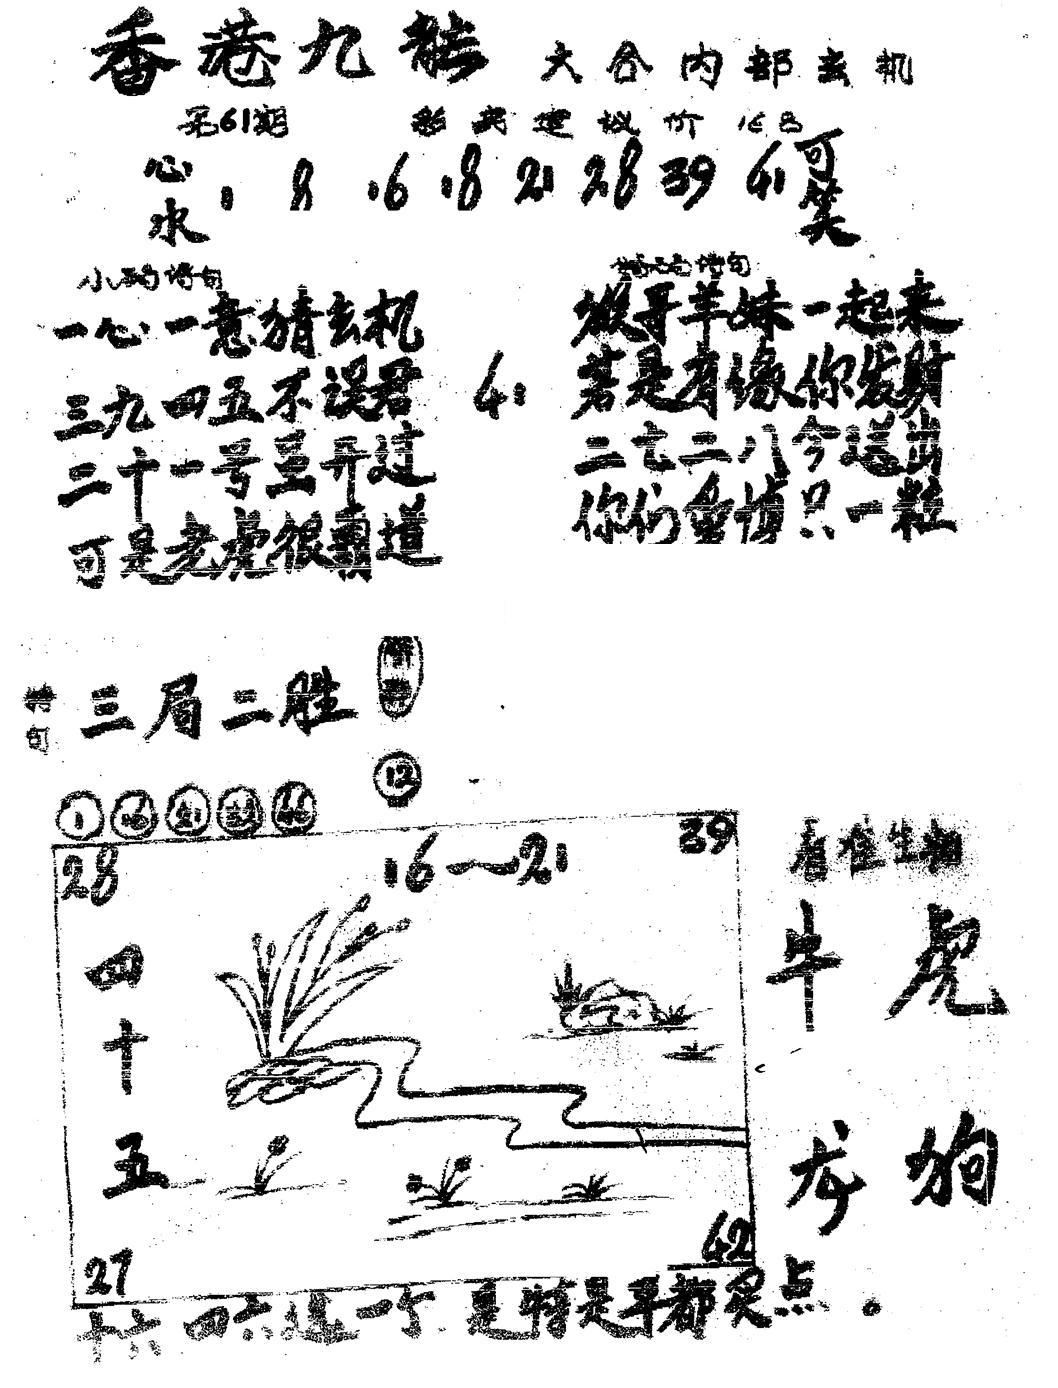 香港九龙 六合内部玄机
第61期 彩民建议价 168
心水 1 8 16 18 21 28 39 41 可笑
小玛诗句
一心一意猜玄机
三九四五不误君
二十一号岂开过
可是老虎很霸道
41
猴哥羊妹一起来
若是有缘你发财
二七二八今送出
你们重博只一粒
特句 三局二胜
12
1 16 21 46
28 16~21 39
四十五
27 42
看准生肖
牛 虎
龙 狗
十六四六送一个 是特是平都买点。